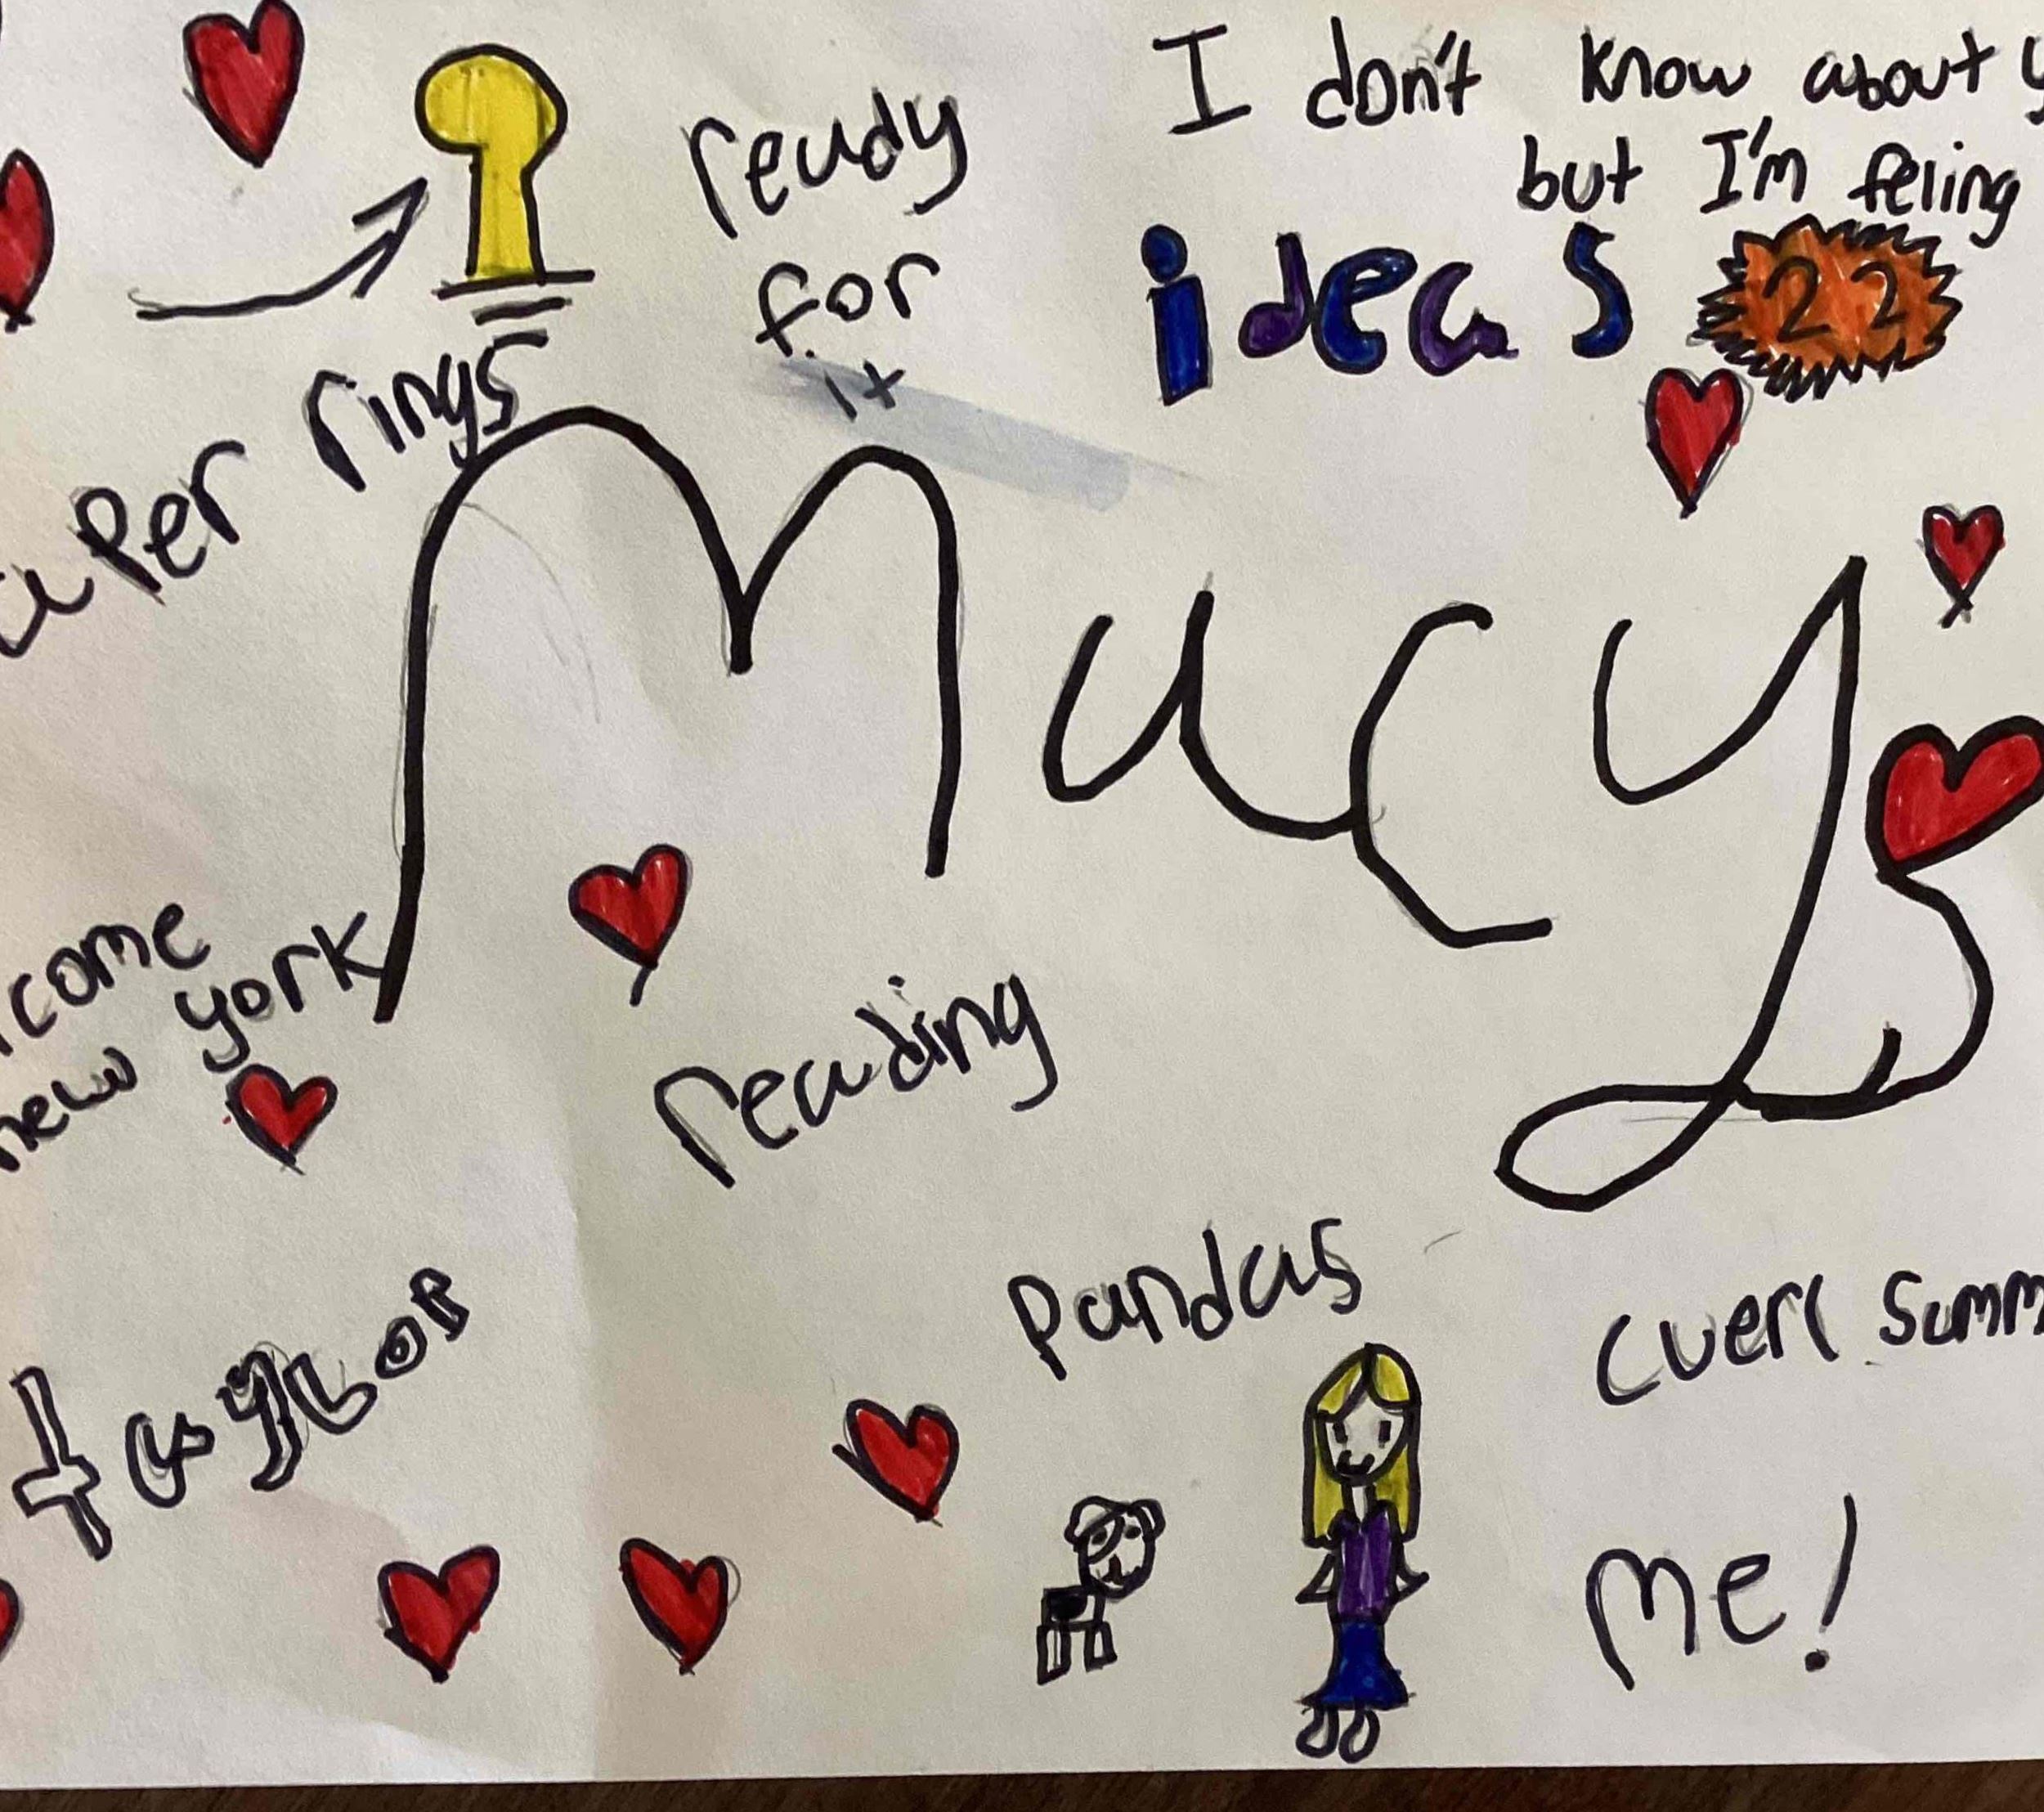 I don't know about y
but I'm feling
22
ideas
ready
for
it
aper rings
Macy
come
new york
reading
taylor
pandas
cuerl summ
me!